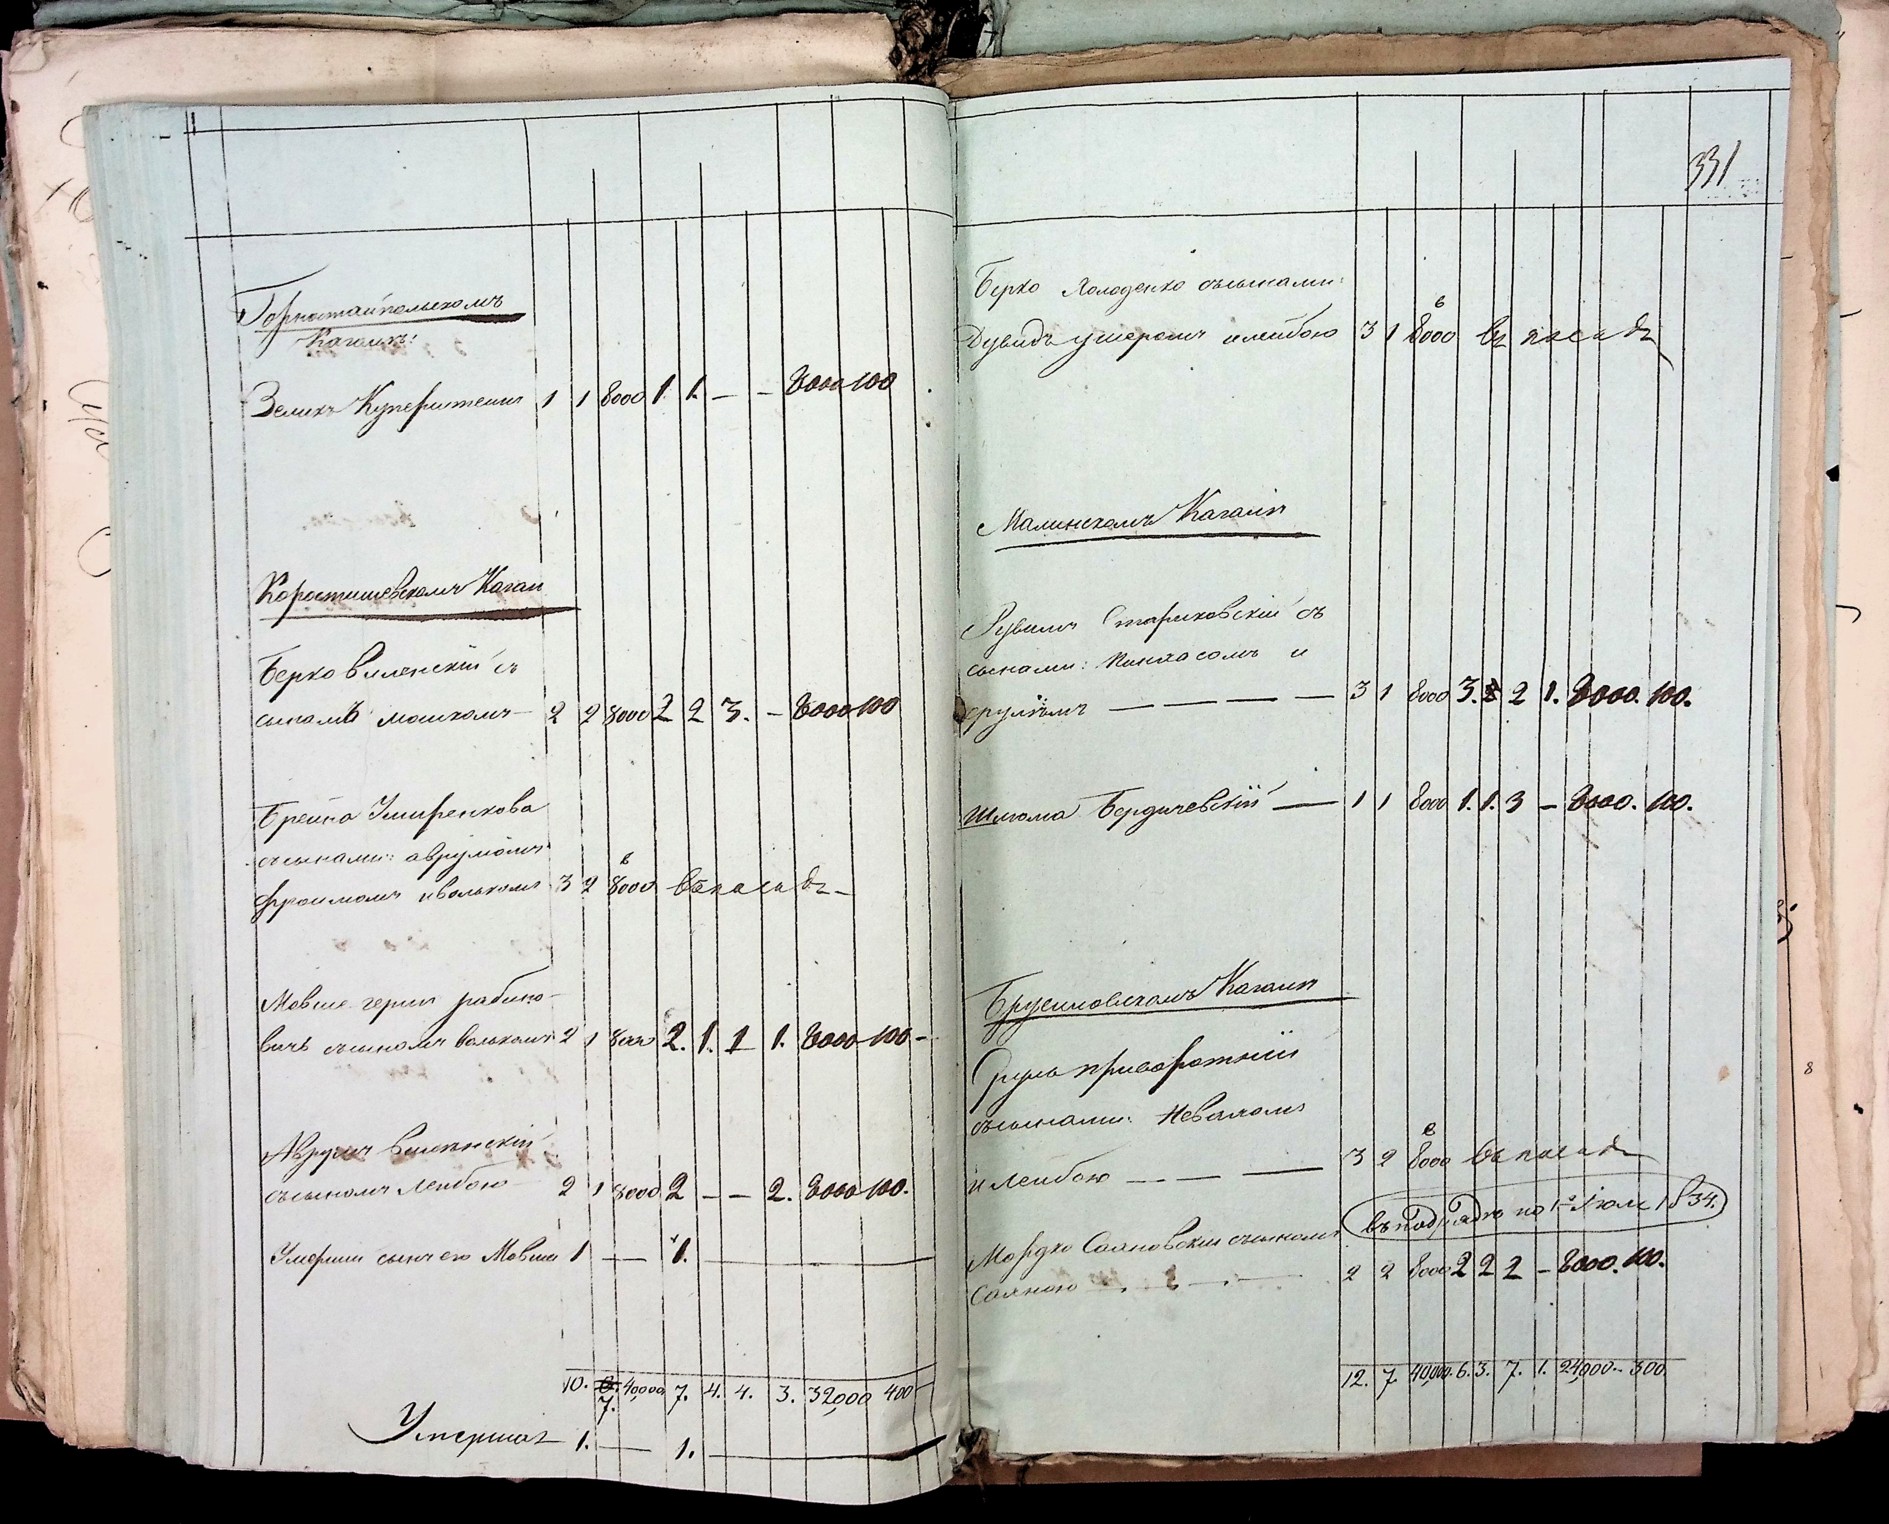 Горностайпольскомъ
Кагалѣ:
Зелихъ Куперштейнъ 1 1 8000 1. 1. — — 8000 100
Коростишевскомъ Кагал
Берко Виленскій съ
сыномъ мошкомъ — 2 2 8000 2 2 3. — 8000 100
Брейна Умиренкова
съ сынами: аврумомъ
фроимомъ и волькомъ 3 2 8000 в въ посадѣ —
Мовше герш рабино-
вичь съ сыномъ волькомъ 2 1 8000 2. 1. 1 1. 8000 100 —
Аврумъ Виленскій
съ сыномъ Лейбою 2 1 8000 2 — — 2. 8000 100.
Умерши сынъ его Мовша 1 — 1. —
10. 7. 40,000 7. 4. 4. 3. 32,000 400
Умерша 1. — 1. —
331
Берко Холоденко съ сынами:
Дувидъ ушеромъ и лейбою 3 1 8000 в въ посадѣ
Малинскомъ Кагалѣ
Рувинъ Стариковскій съ
сынами: Пинхасомъ и
сруліомъ — — — — 3 1 8000 3. 2 1. 8000. 100.
Шлома Бердичевскій — 1 1 8000 1. 1. 3 — 8000. 100.
Брусиловскомъ Кагалѣ
Сруль приворотній
съ сынами:
и Лейбою — — — 3 2 8000 в въ посадѣ
въ Подрядѣ по 1е Іюля 1834.
Мордко Саяновскій съ сыномъ
Саяною — 2 2 8000 2 2 2 — 8000. 100.
12. 7 40,000. 6. 3. 7. 1. 24,000 — 300.